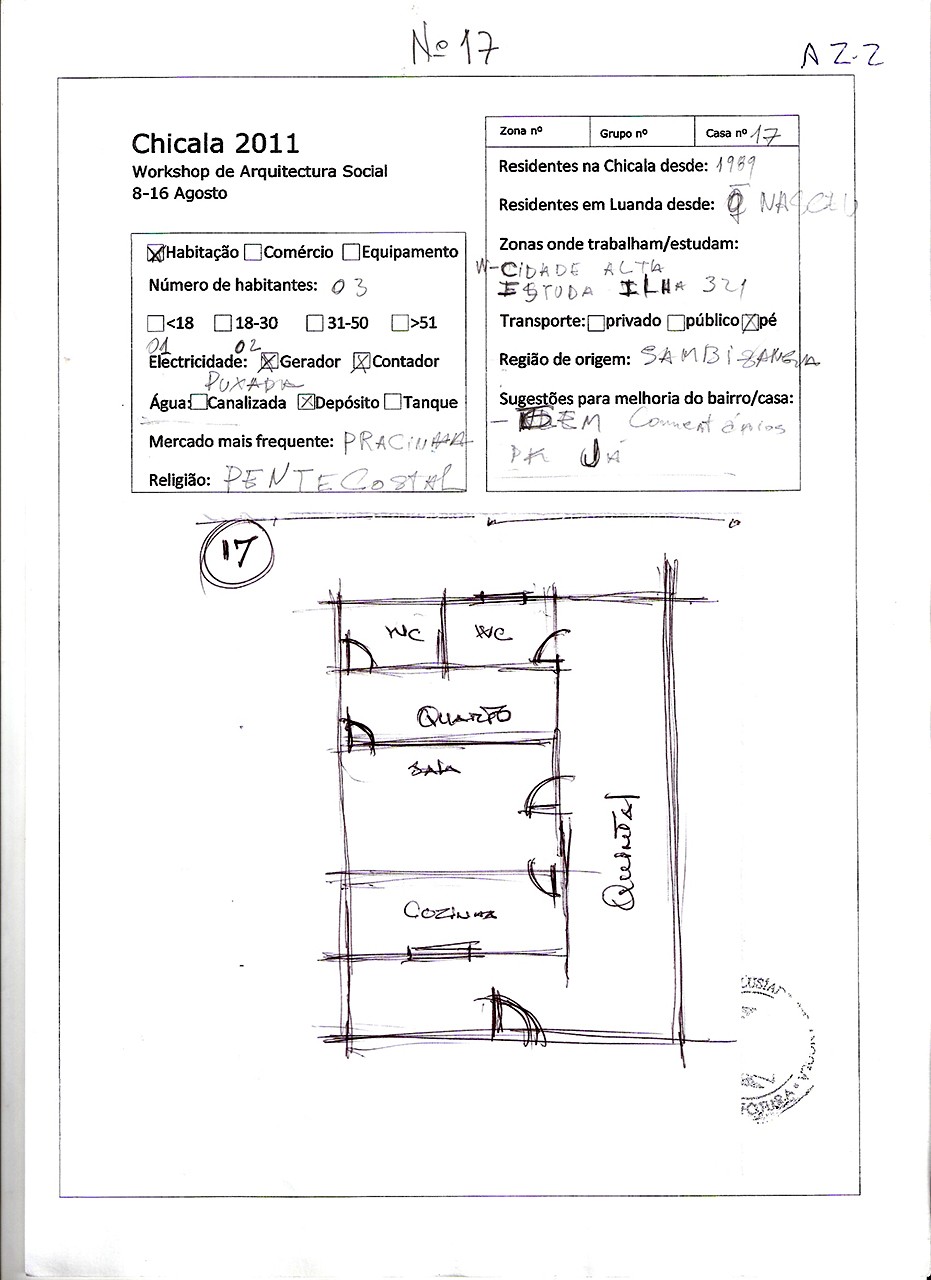 Nº 17
A Z-Z
Chicala 2011
Workshop de Arquitectura Social
8-16 Agosto
Habitação Comércio Equipamento
Número de habitantes: 03
<18 18-30 31-50 >51
01 02
Electricidade: Gerador Contador
PUXADA
Água: Canalizada Depósito Tanque
Mercado mais frequente: PRACINHA
Religião: PENTECOSTAL
Zona nº Grupo nº Casa nº 17
Residentes na Chicala desde: 1989
Residentes em Luanda desde: NASCEU
Zonas onde trabalham/estudam:
CIDADE ALTA
ESTUDA ILHA 321
Transporte: privado público pé
Região de origem: SAMBIZANGA
Sugestões para melhoria do bairro/casa:
Comentários
17
WC WC
QUARTO
SALA
QUINTAL
COZINHA